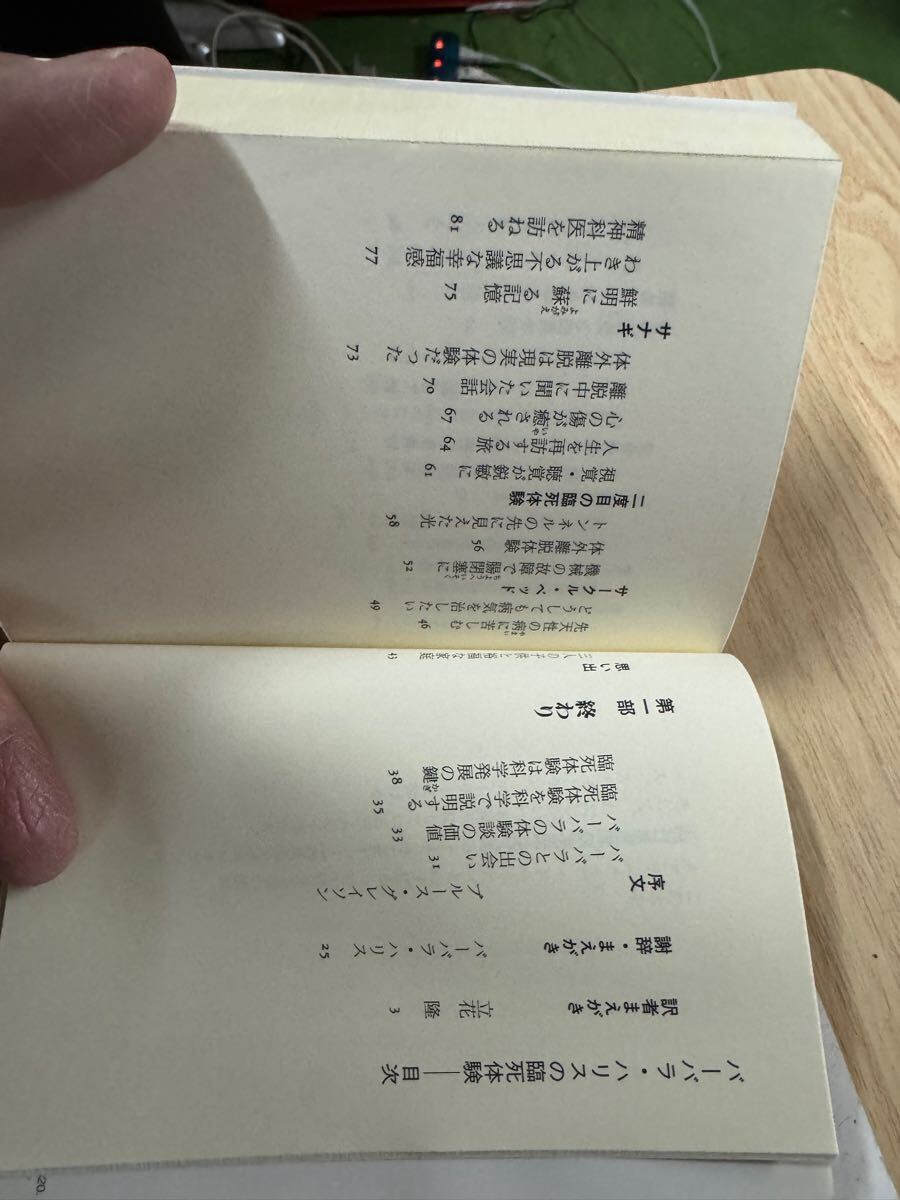 バーバラ・ハリスの臨死体験──目次
訳者まえがき 立花 隆 3
謝辞・まえがき バーバラ・ハリス 25
序文 ブルース・グレイソン
バーバラとの出会い 31
バーバラの体験談の価値 33
臨死体験を科学で説明する 35
臨死体験は科学発展の鍵 38
かぎ
第一部 終わり
思い出
三人の子供と裕福な家庭 43
先天性の病に苦しむ 46
やまい
どうしても病気を治したい 49
サークル・ベッド
機械の故障で腸閉塞に 52
ちょうへいそく
体外離脱体験 56
トンネルの先に見えた光 58
二度目の臨死体験
視覚・聴覚が鋭敏に 61
人生を再訪する旅 64
心の傷が癒される 67
いや
離脱中に聞いた会話 70
体外離脱は現実の体験だった 73
サナギ
鮮明に蘇る記憶 75
よみがえ
わき上がる不思議な幸福感 77
精神科医を訪ねる 81
20.